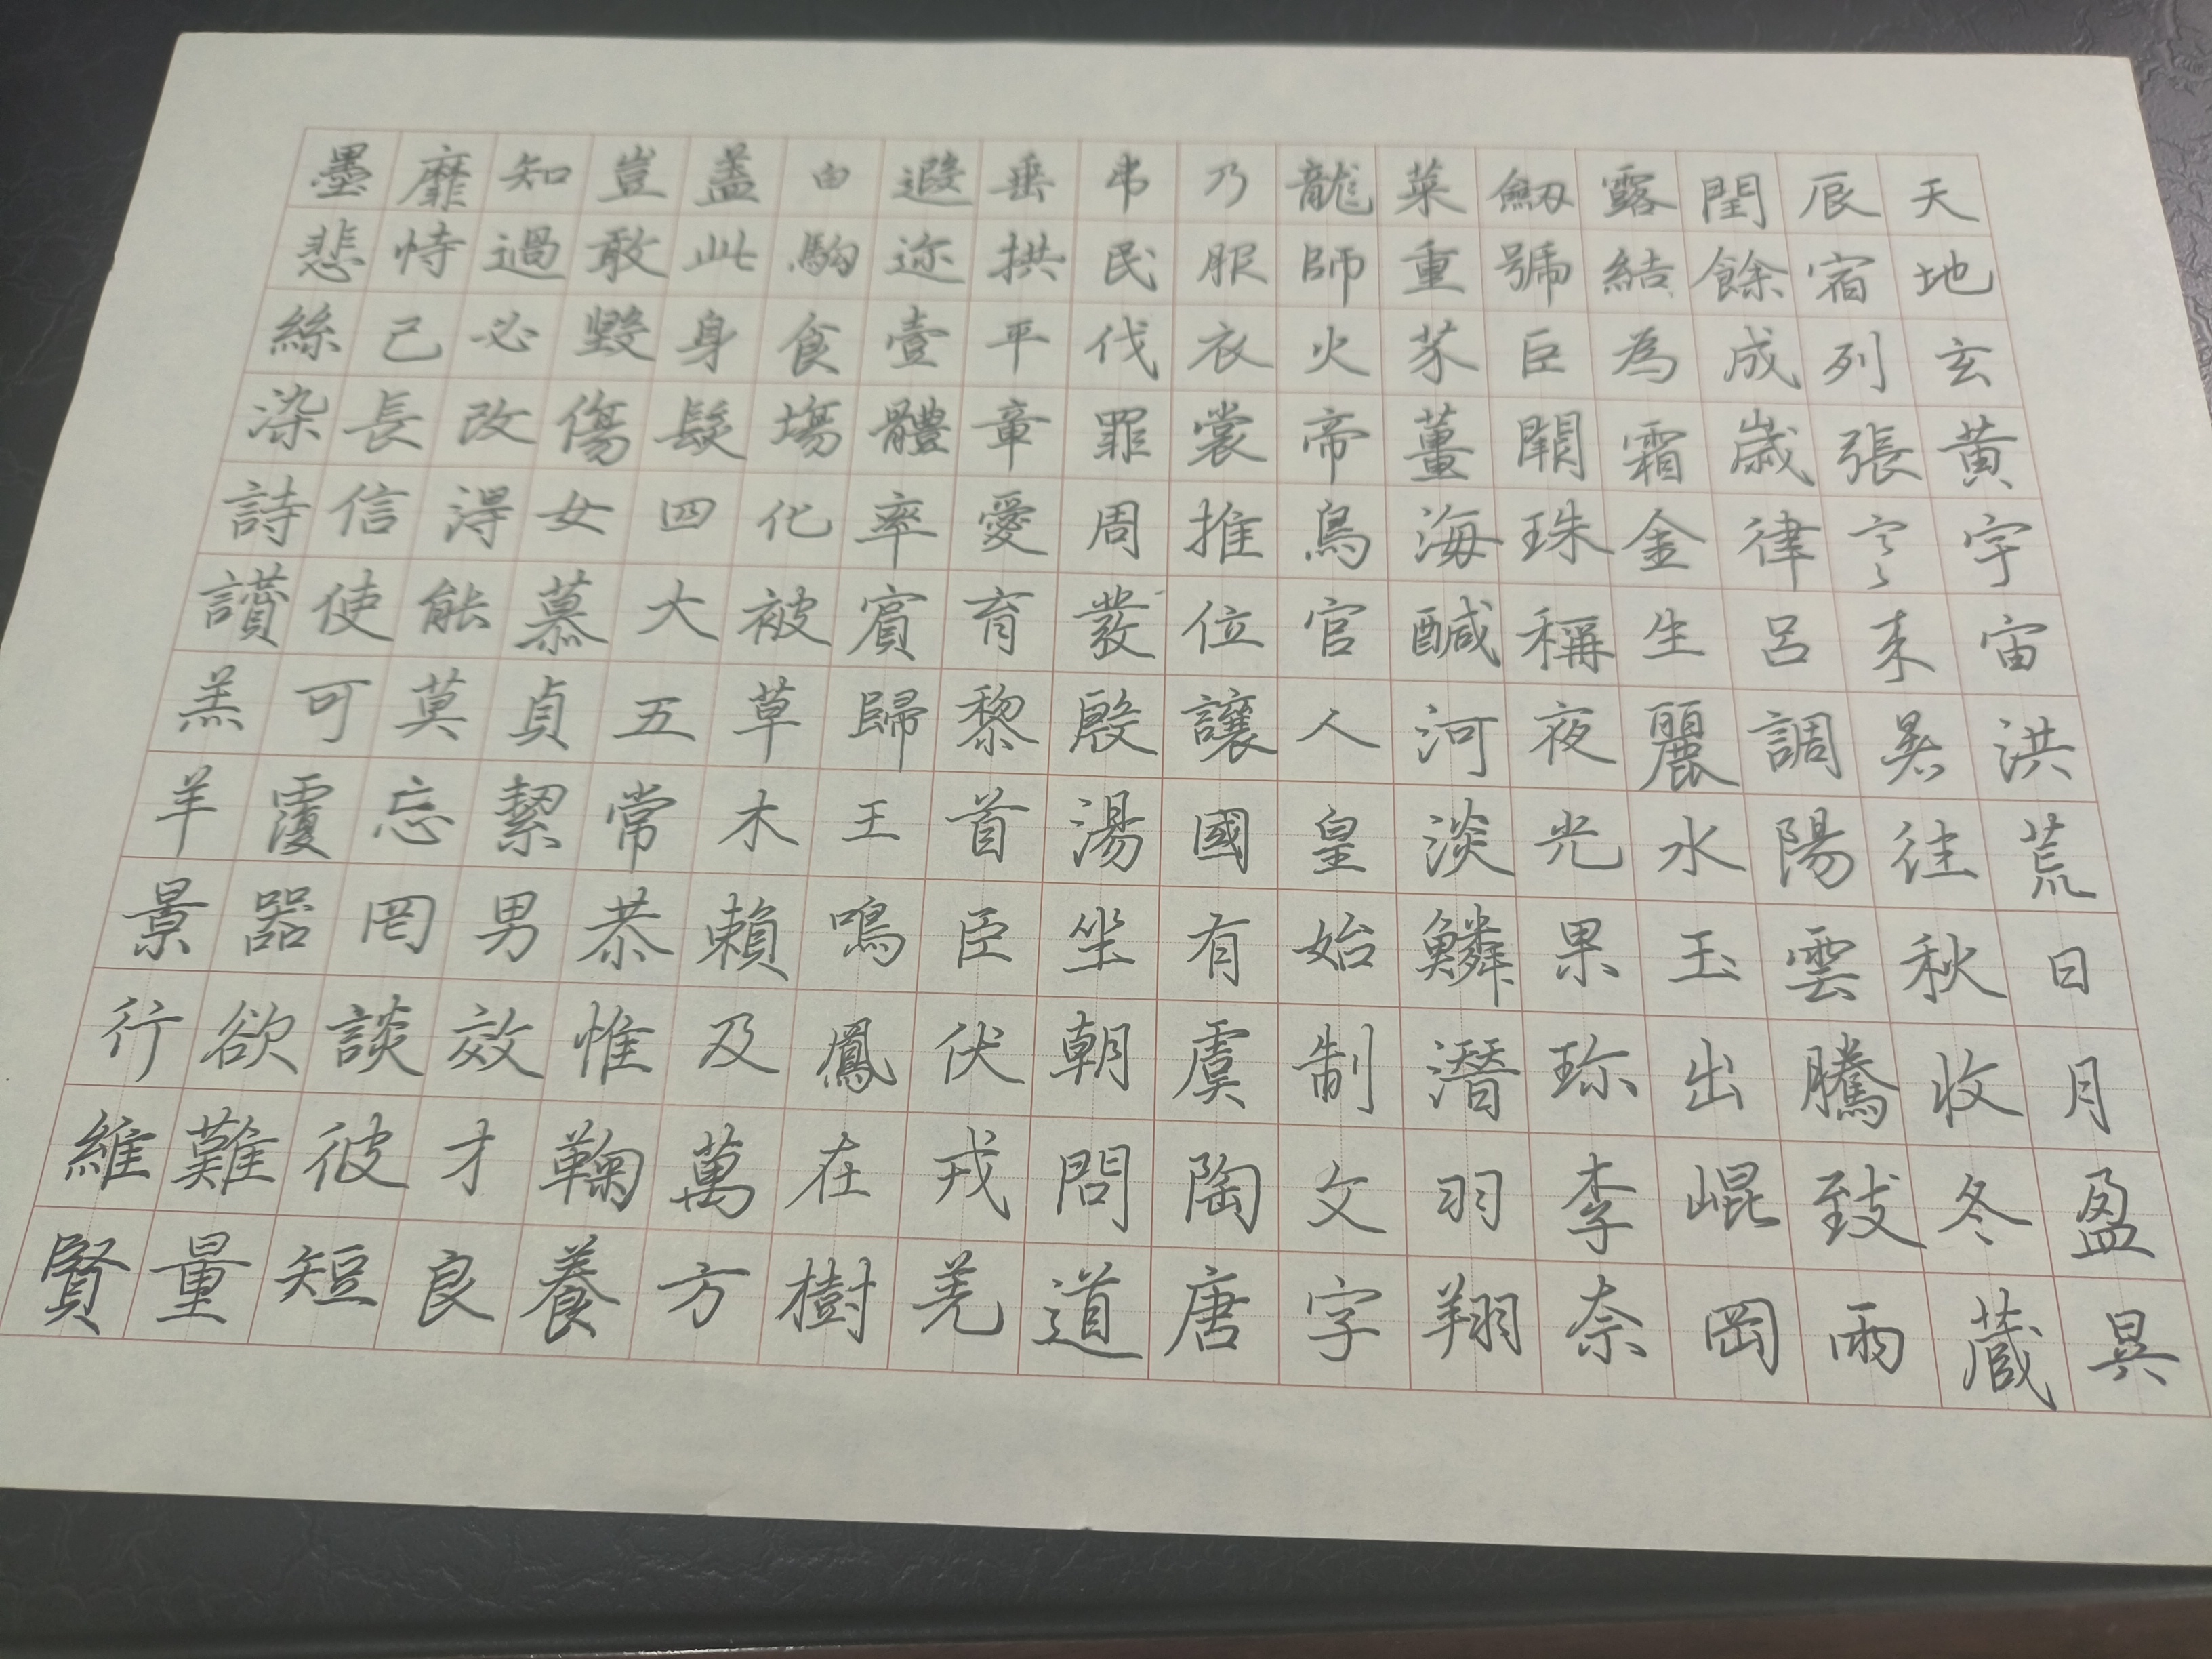 天地玄黃宇宙洪荒日月盈昃
辰宿列張寒來暑往秋收冬藏
閏餘成歲律呂調陽雲騰致雨
露結為霜金生麗水玉出崐岡
劒號巨闕珠稱夜光果珎李柰
菜重芥薑海醎河淡鱗潛羽翔
龍師火帝鳥官人皇始制文字
乃服衣裳推位讓國有虞陶唐
弔民伐罪周發殷湯坐朝問道
垂拱平章愛育黎首臣伏戎羌
遐迩壹體率賓歸王鳴鳳在樹
白駒食場化被草木賴及萬方
蓋此身髮四大五常恭惟鞠養
豈敢毀傷女慕貞絜男效才良
知過必改得能莫忘罔談彼短
靡恃己長信使可覆器欲難量
墨悲絲染詩讚羔羊景行維賢